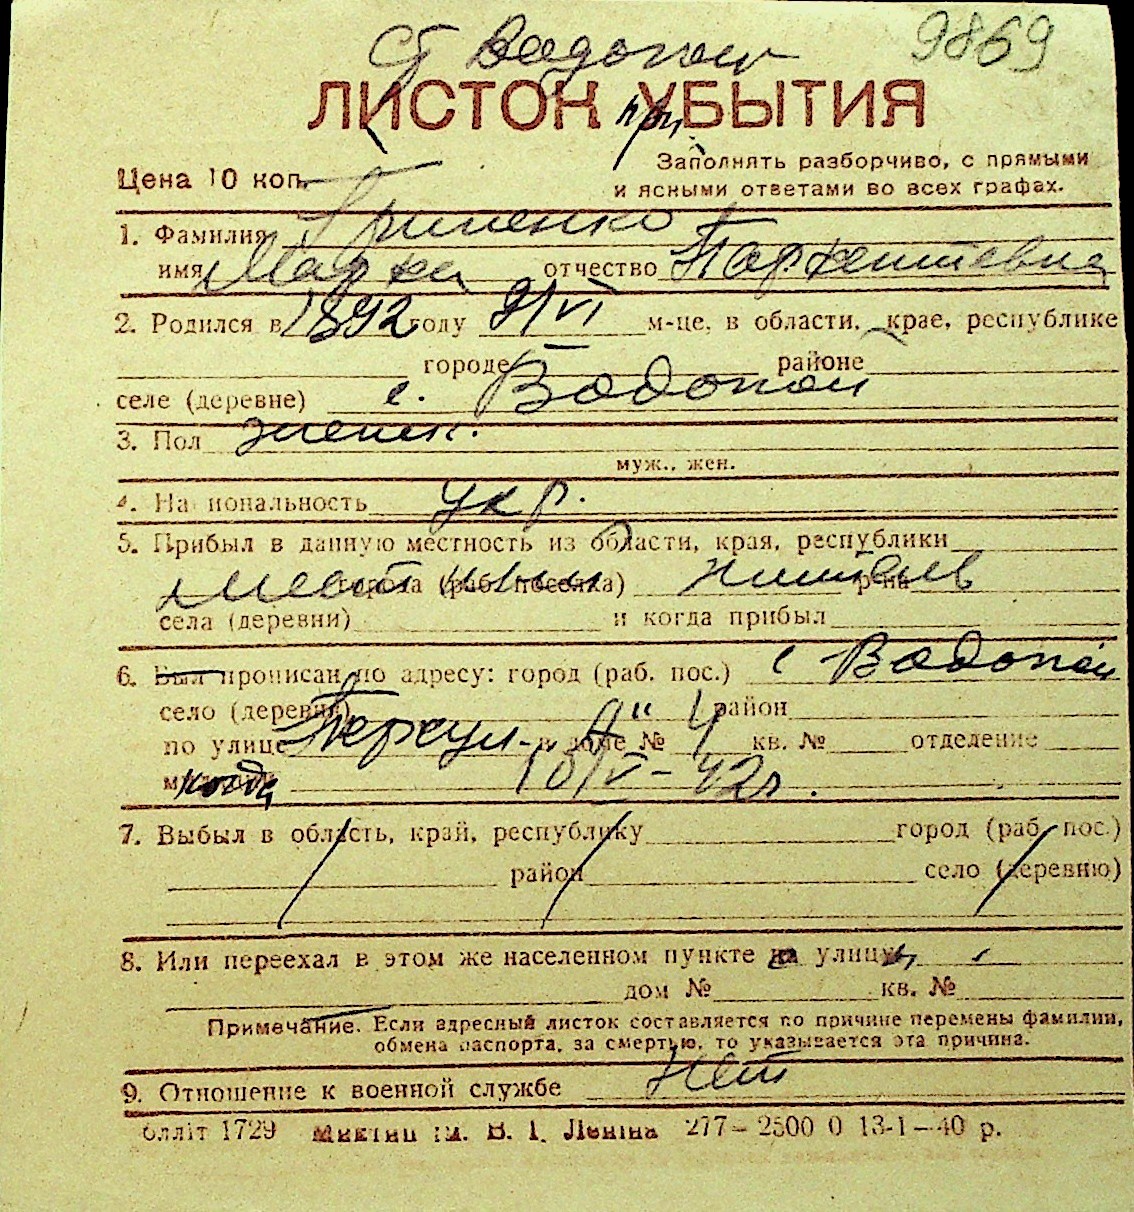 Ст Водопой 9869
ЛИСТОК при УБЫТИЯ
Заполнять разборчиво, с прямыми
Цена 10 коп.
и ясными ответами во всех графах.
1. Фамилия Гриненко
имя Марфа отчество Парфентиевна
2. Родился в 1892 году 9/VI м-це, в области, крае, республике
городе районе
селе (деревне) с. Водопой
3. Пол женск.
муж., жен.
4. Национальность укр.
5. Прибыл в данную местность из области, края, республики
города (раб. поселка) р-на
села (деревни) и когда прибыл
6. Был прописан по адресу: город (раб. пос.) с Водопой
село (деревня) район
по улице Переул. "А" в доме № 4 кв. № отделение
милиции когда 10/VI-42г.
7. Выбыл в область, край, республику город (раб. пос.)
район село (деревню)
8. Или переехал в этом же населенном пункте на улицу
дом № кв. №
Примечание. Если адресный листок составляется по причине перемены фамилии,
обмена паспорта, за смертью, то указывается эта причина.
9. Отношение к военной службе Нет
блліт 1729 ім. В. І. Леніна 277—2500 0 13-1—40 р.